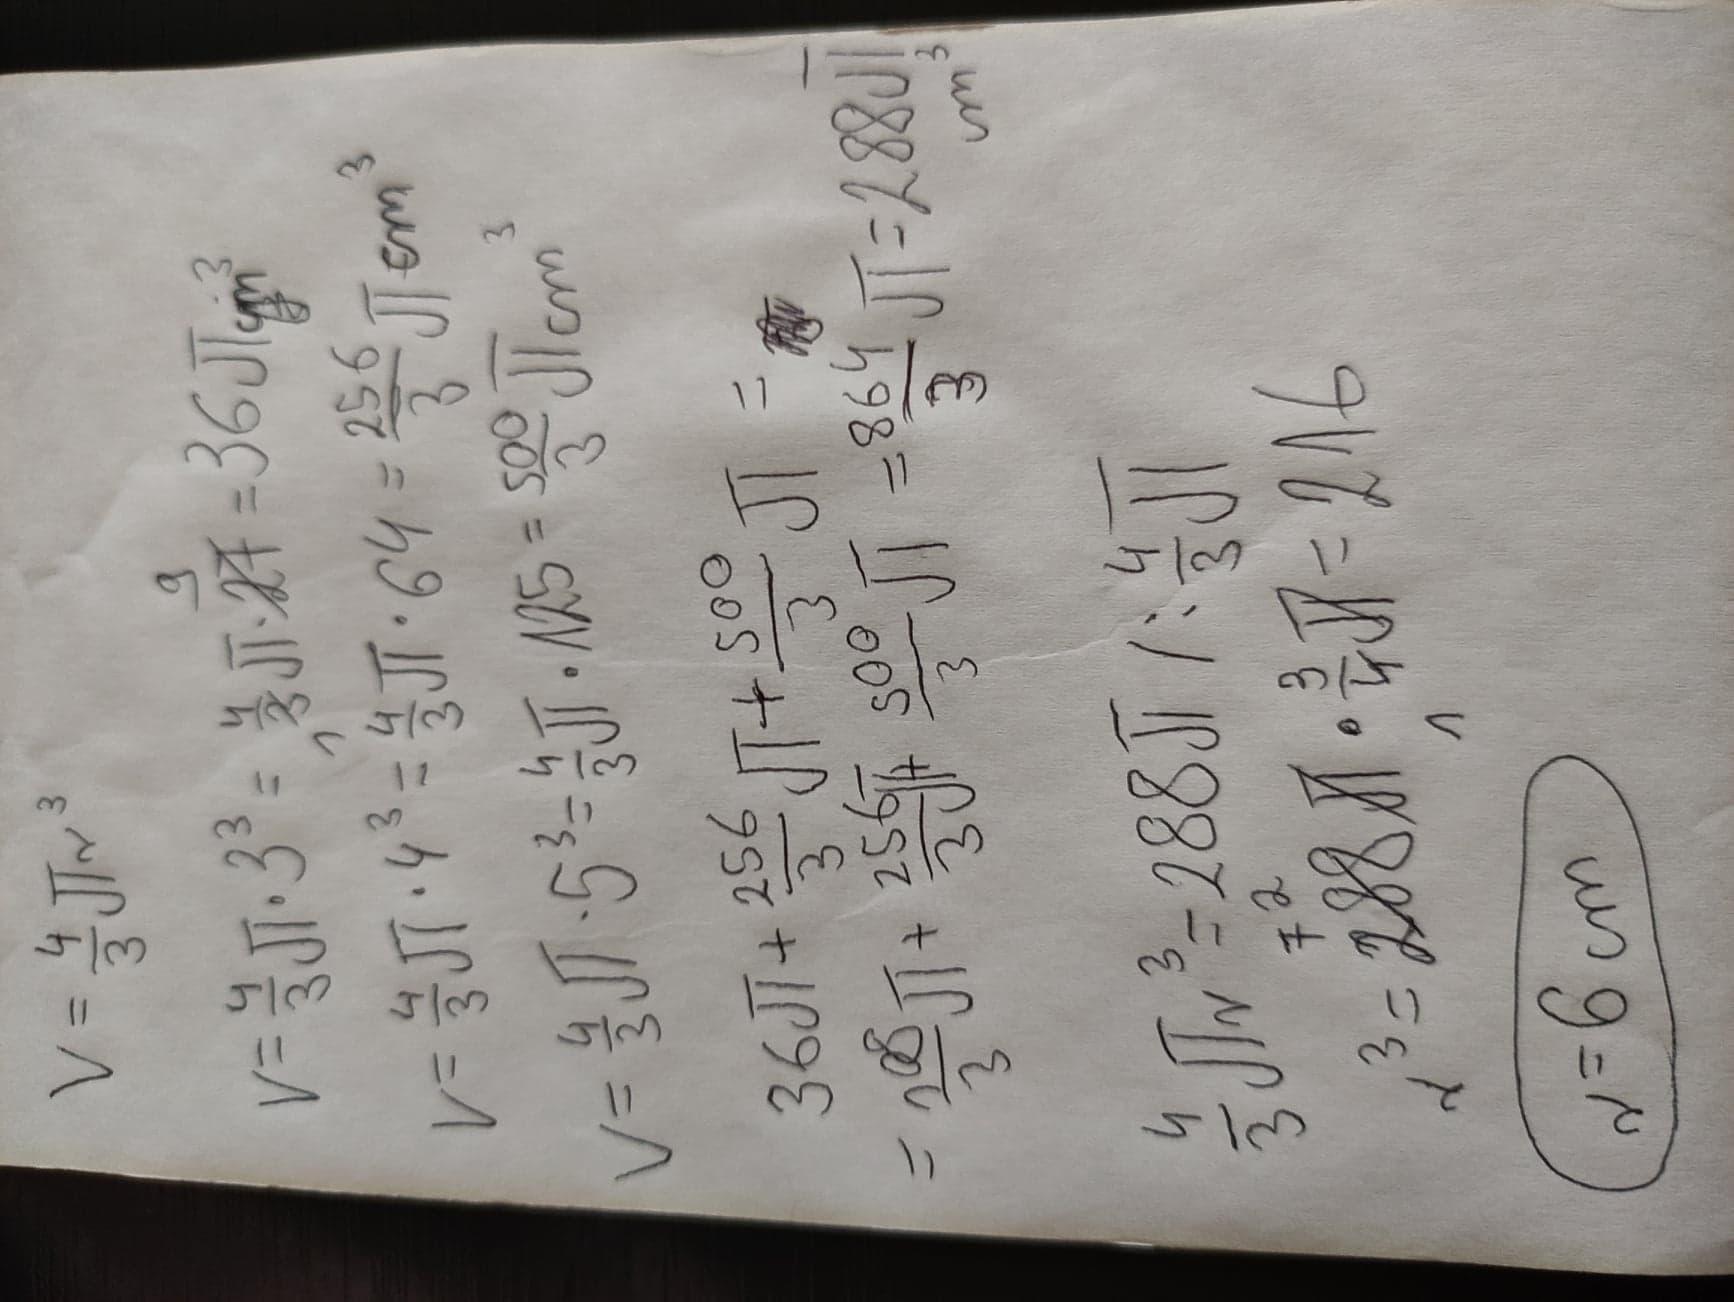 V = 4/3 π r³
V = 4/3 π · 3³ = 4/3 π · 27 9 1 = 36π cm³
V = 4/3 π · 4³ = 4/3 π · 64 = 256/3 π cm³
V = 4/3 π · 5³ = 4/3 π · 125 = 500/3 π cm³
36π + 256/3 π + 500/3 π =
= 108/3 π + 256/3 π + 500/3 π = 864/3 π = 288π cm³
4/3 π r³ = 288π / : 4/3 π
r³ = 288π 72 · 3/4π 1 = 216
r = 6 cm